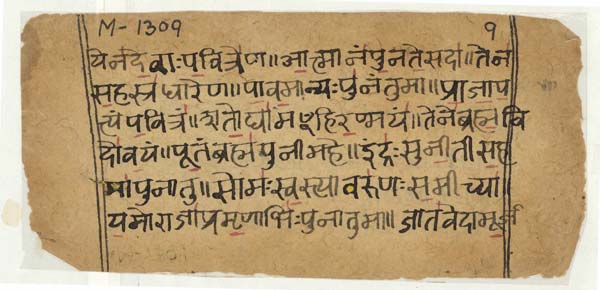 M-1309 १
येनदेवाःपवित्रेण॥आत्मानंपुनतेसदा॥तेन
सहस्त्रधारेण॥पावमान्यःपुनंतुमा॥प्राजाप
त्यंपवित्रं॥शतोद्यामꣳहिरण्मयं॥तेनब्रह्मवि
दोवयं॥पूतंब्रह्मपुनीमहे॥इंद्रःसुनीतीसह
मापुनातु॥सोमःस्वस्त्यावरुणःसमीच्या॥
यमोराजाप्रमृणाभिःपुनातुमा॥जातवेदामूर्ज